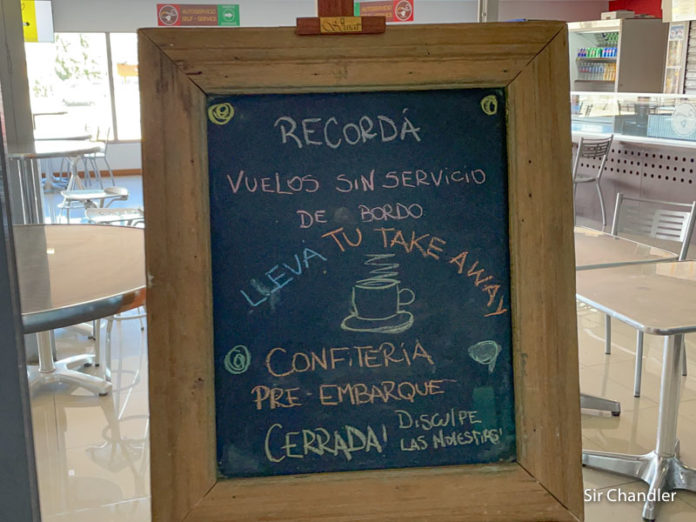 AUTOSERVICIO
SELF - SERVICE
RECORDÁ
VUELOS SIN SERVICIO
DE BORDO
LLEVÁ TU TAKE AWAY
CONFITERÍA
PRE-EMBARQUE
CERRADA! DISCULPE
LAS MOLESTIAS!
Sir Chandler